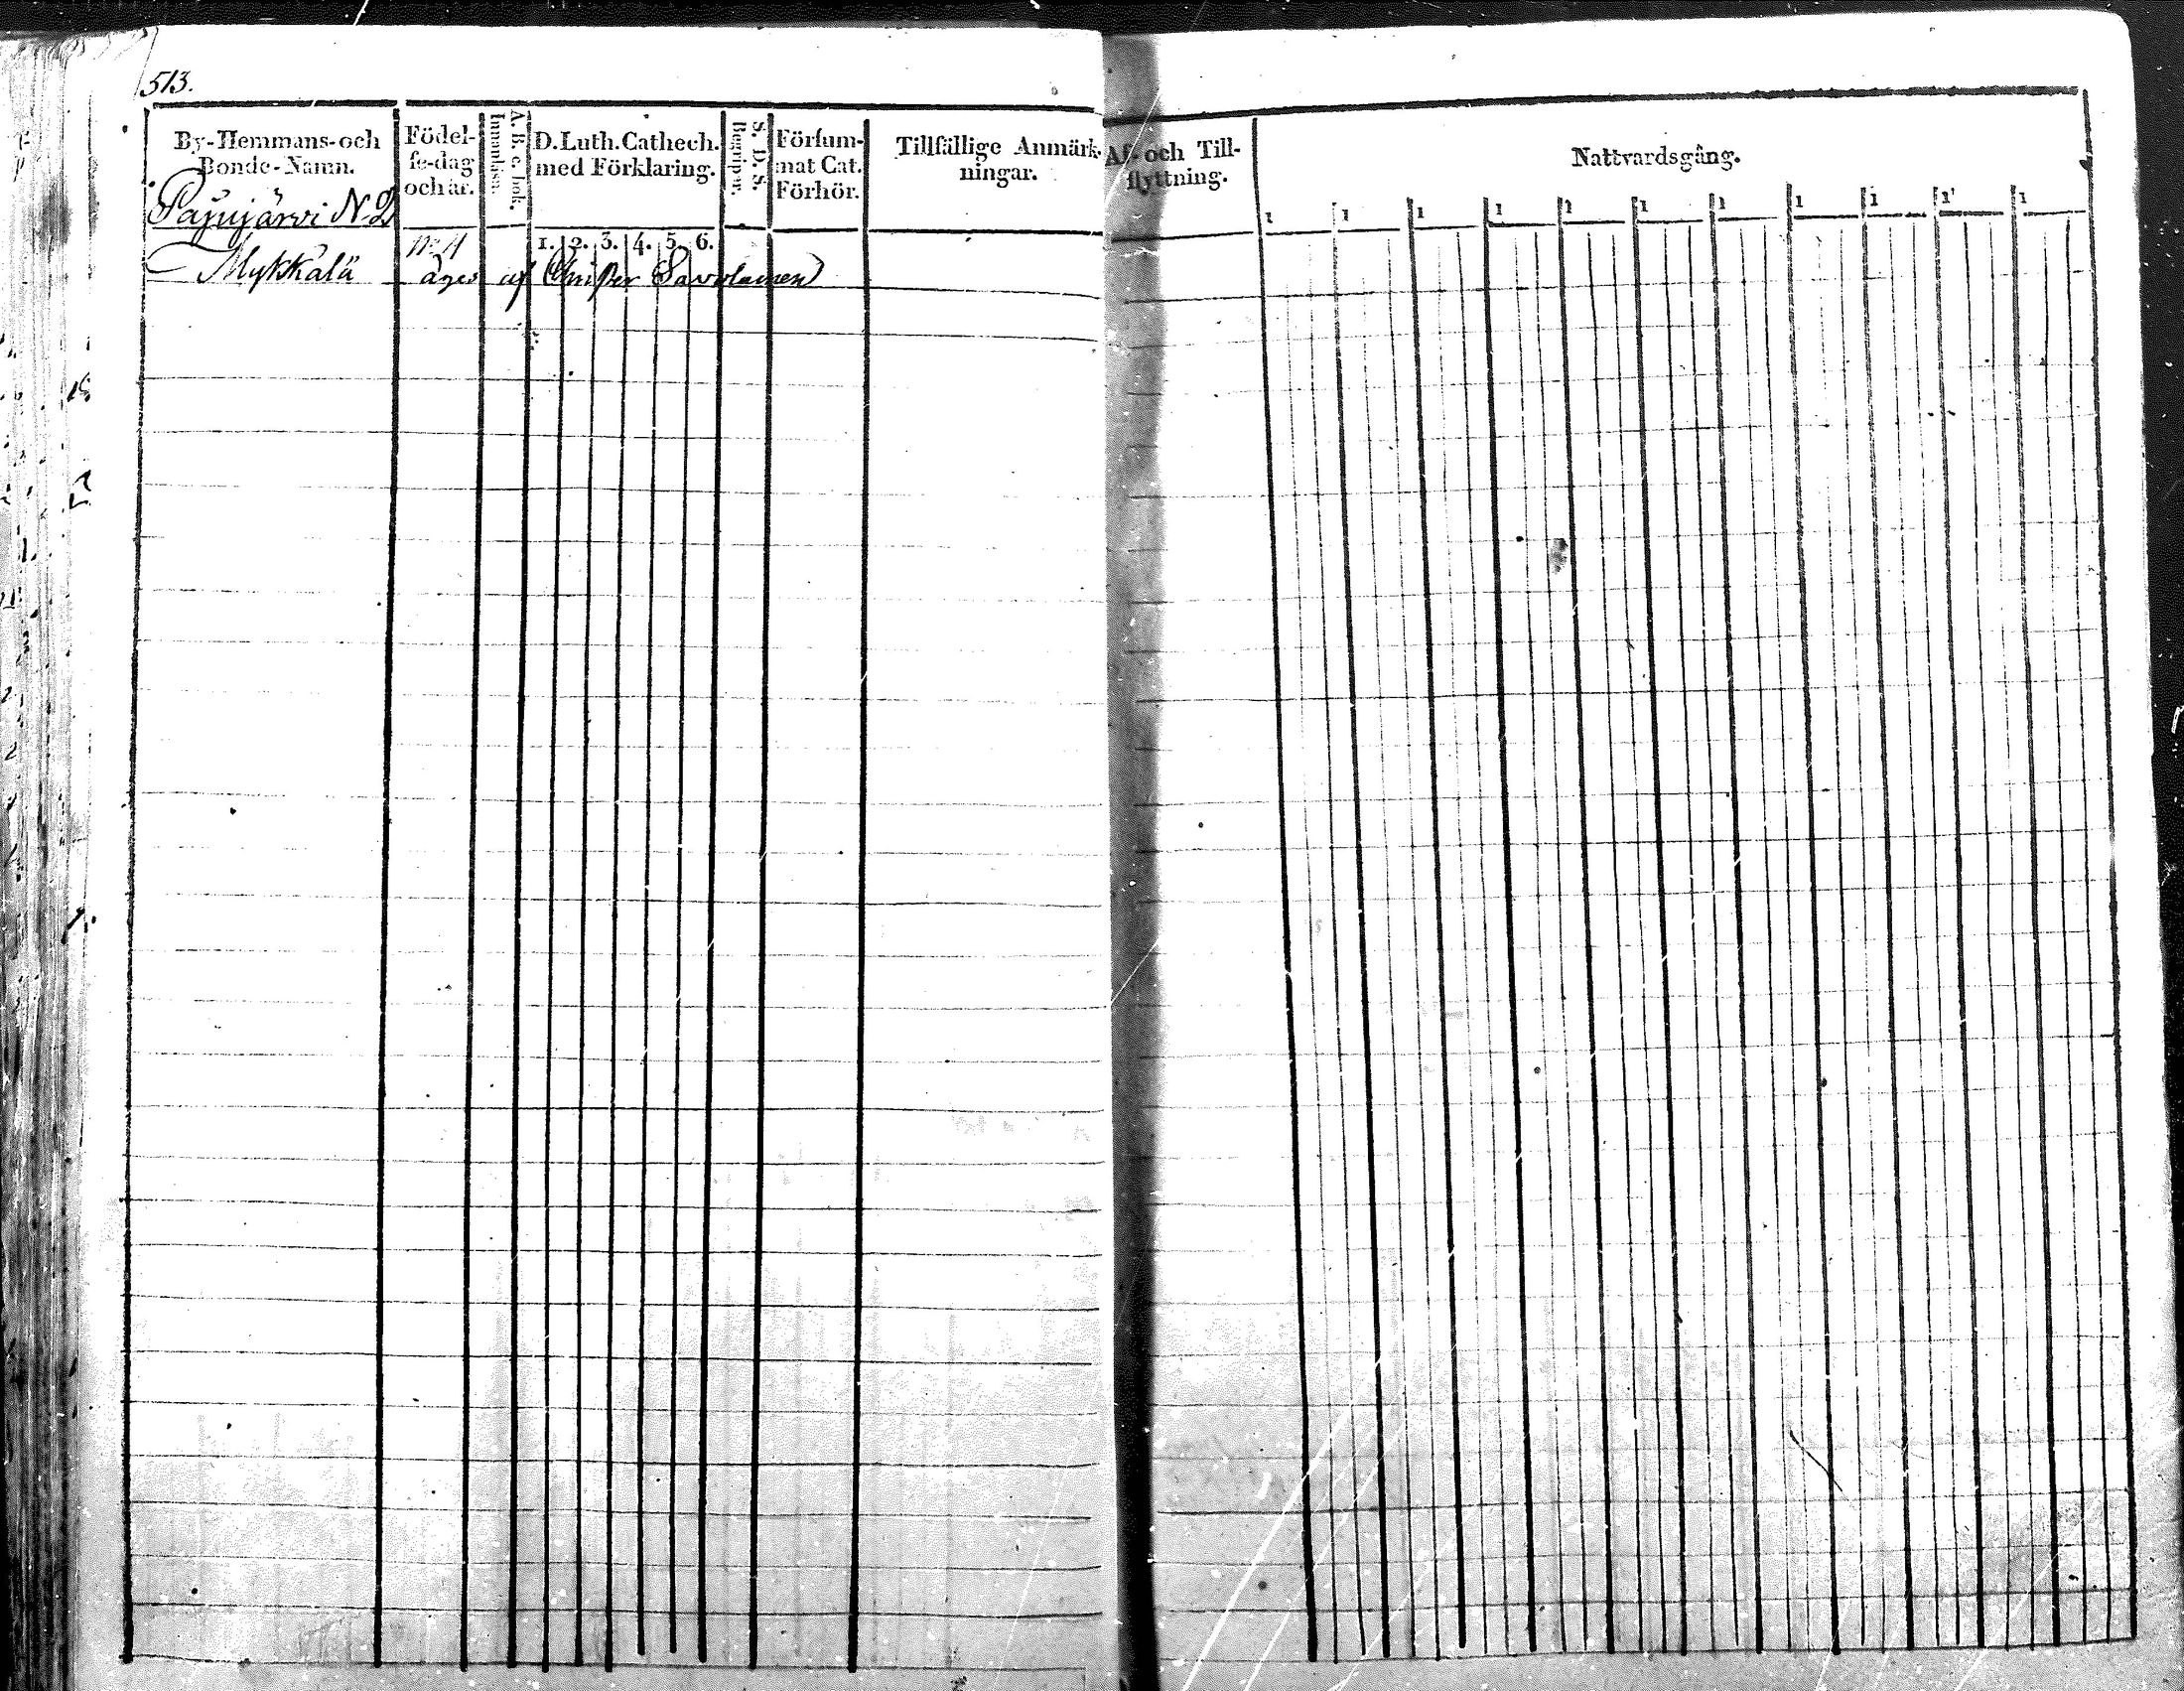 513.
By-Hemmans-och Bonde-Namn.
Födel-se-dag och år.
A. B. c. bok.
Innanläsn.
D. Luth. Cathech. med Förklaring.
S. D. S.
Begriper.
Försum-mat Cat. Förhör.
Tillfällige Anmärk-ningar.
Af- och Till-flyttning.
Nattvardsgång.
Pajujärvi N 2
1 1 1 1 1 1 1 1 1 1 1
1. 2. 3. 4. 5. 6.
Mykkälä äges af Christer Savolainen